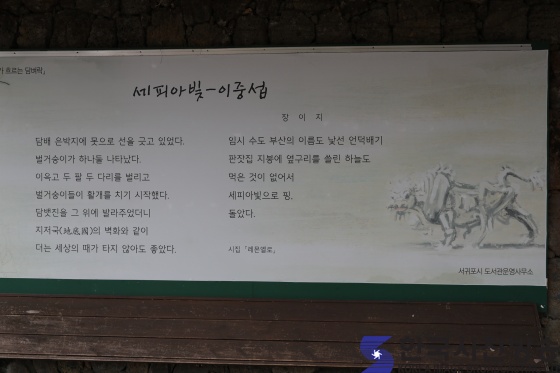 가 흐르는 담벼락」
세피아빛-이중섭
장 이 지
담배 은박지에 못으로 선을 긋고 있었다.
벌거숭이가 하나둘 나타났다.
이윽고 두 팔 두 다리를 벌리고
벌거숭이들이 활개를 치기 시작했다.
담뱃진을 그 위에 발라주었더니
지저국(地底國)의 벽화와 같이
더는 세상의 때가 타지 않아도 좋았다.
임시 수도 부산의 이름도 낯선 언덕배기
판잣집 지붕에 옆구리를 쓸린 하늘도
먹은 것이 없어서
세피아빛으로 핑.
돌았다.
시집 「레몬옐로」
서귀포시 도서관운영사무소